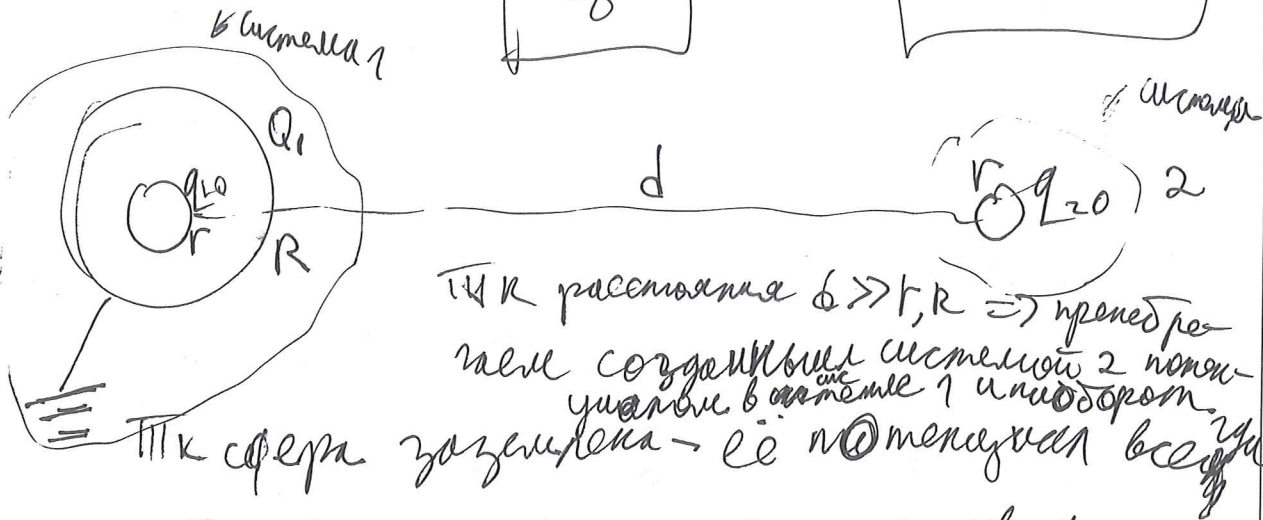 система 1
Q₁
q=0
r
R
d
r
q=0
2
Тк расстояния d >> r, R => пренебре-
гаем созданным системой 2 потен-
циалом в системе 1 и наоборот.
Тк сфера заземлена - её потенциал всегда